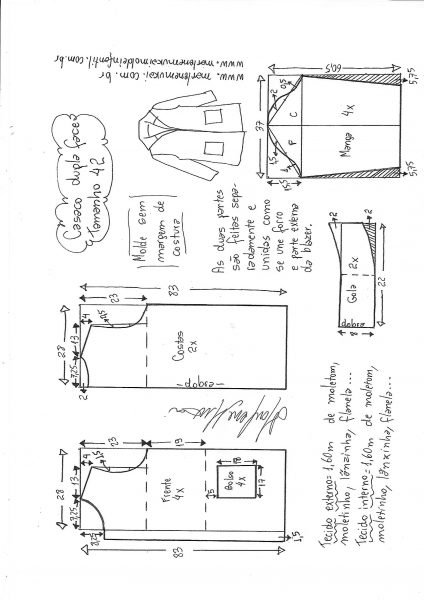 www.marlenemukaimoldeinfantil.com.br
www.marlenemukai.com.br
Casaco dupla face
Tamanho 42
Molde sem
margem de
costura
As duas partes
são feitas sepa-
radamente e
unidas como
se une forro
e parte externa
da blazer.
60,5
5,75
37
2
0,5
C
4x
F
Manga
1,5
5,75
2
2
Gola 2x
22
8
83
23
4
0,5
28
13
7,25
2
Costas
2x
83
23
13
4
1,5
28
13
7,25
Frente
4x
18
Bolso
4x
17
1,5
Tecido externo = 1,60m de moletom,
moletinho, lãnzinha, flanela...
Tecido interno = 1,60m de moletom,
moletinho, lãnxinha, flanela...